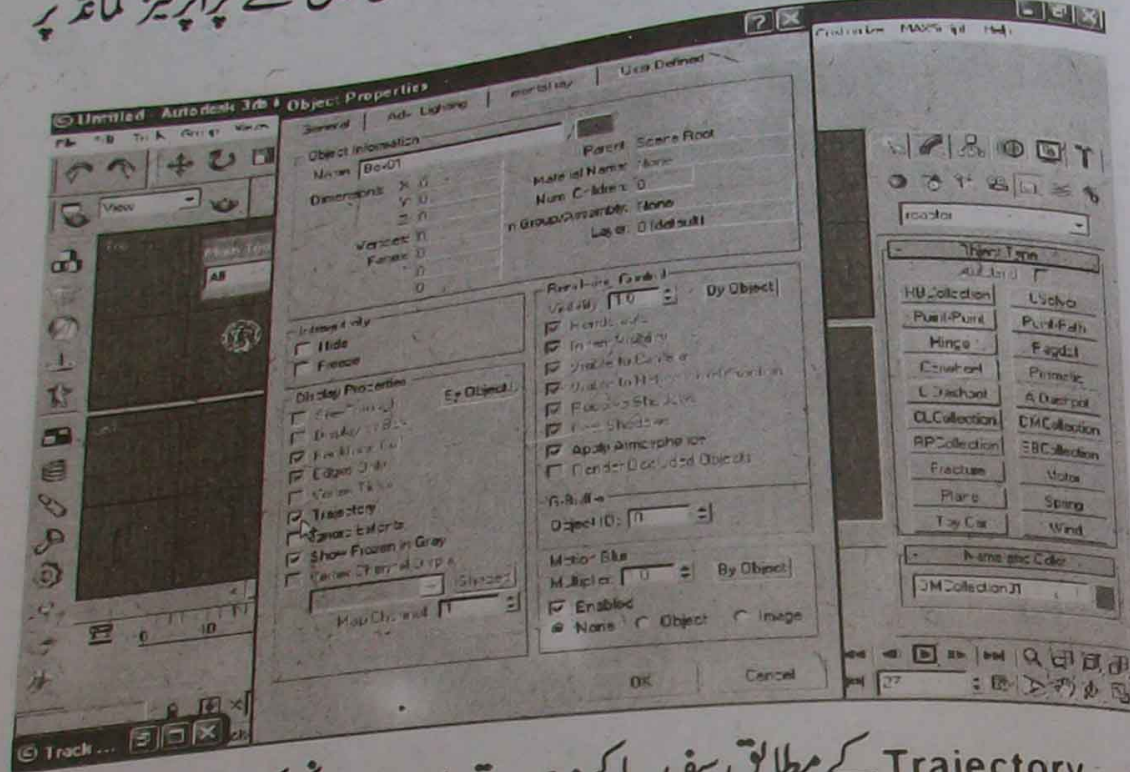 کے پراپرٹیز کمانڈ پر
Untitled - Autodesk 3ds
Object Properties
General
Adv. Lighting
mental ray
User Defined
Customize MAXScript Help
Object Information
Name: Box01
Dimensions: X: 0
Y: 0
Z: 0
Vertices: 0
Faces: 0
0
0
Parent: Scene Root
Material Name: None
Num. Children: 0
In Group/Assembly: None
Layer: 0 (default)
Interactivity
Hide
Freeze
Display Properties
By Object
See-Through
Display as Box
Backface Cull
Edges Only
Vertex Ticks
Trajectory
Ignore Extents
Show Frozen in Gray
Vertex Channel Display
Shaded
Map Channel: 1
Rendering Control
Visibility: 1.0
By Object
Renderable
Inherit Visibility
Visible to Camera
Visible to Reflection/Refraction
Receive Shadows
Cast Shadows
Apply Atmospherics
Render Occluded Objects
G-Buffer
Object ID: 0
Motion Blur
Multiplier:
By Object
Enabled
None
Object
Image
OK
Cancel
View
All
0 10
Track ...
reactor
Object Type
AutoGrid
RBCollection
Point-Point
Point-Path
Hinge
Ragdoll
Prismatic
L Dashpot
A Dashpot
CLCollection
DMCollection
RPCollection
SBCollection
Fracture
Motor
Plane
Spring
Toy Car
Wind
Name and Color
DMCollection01
27
Trajectory کے مطابق سفر